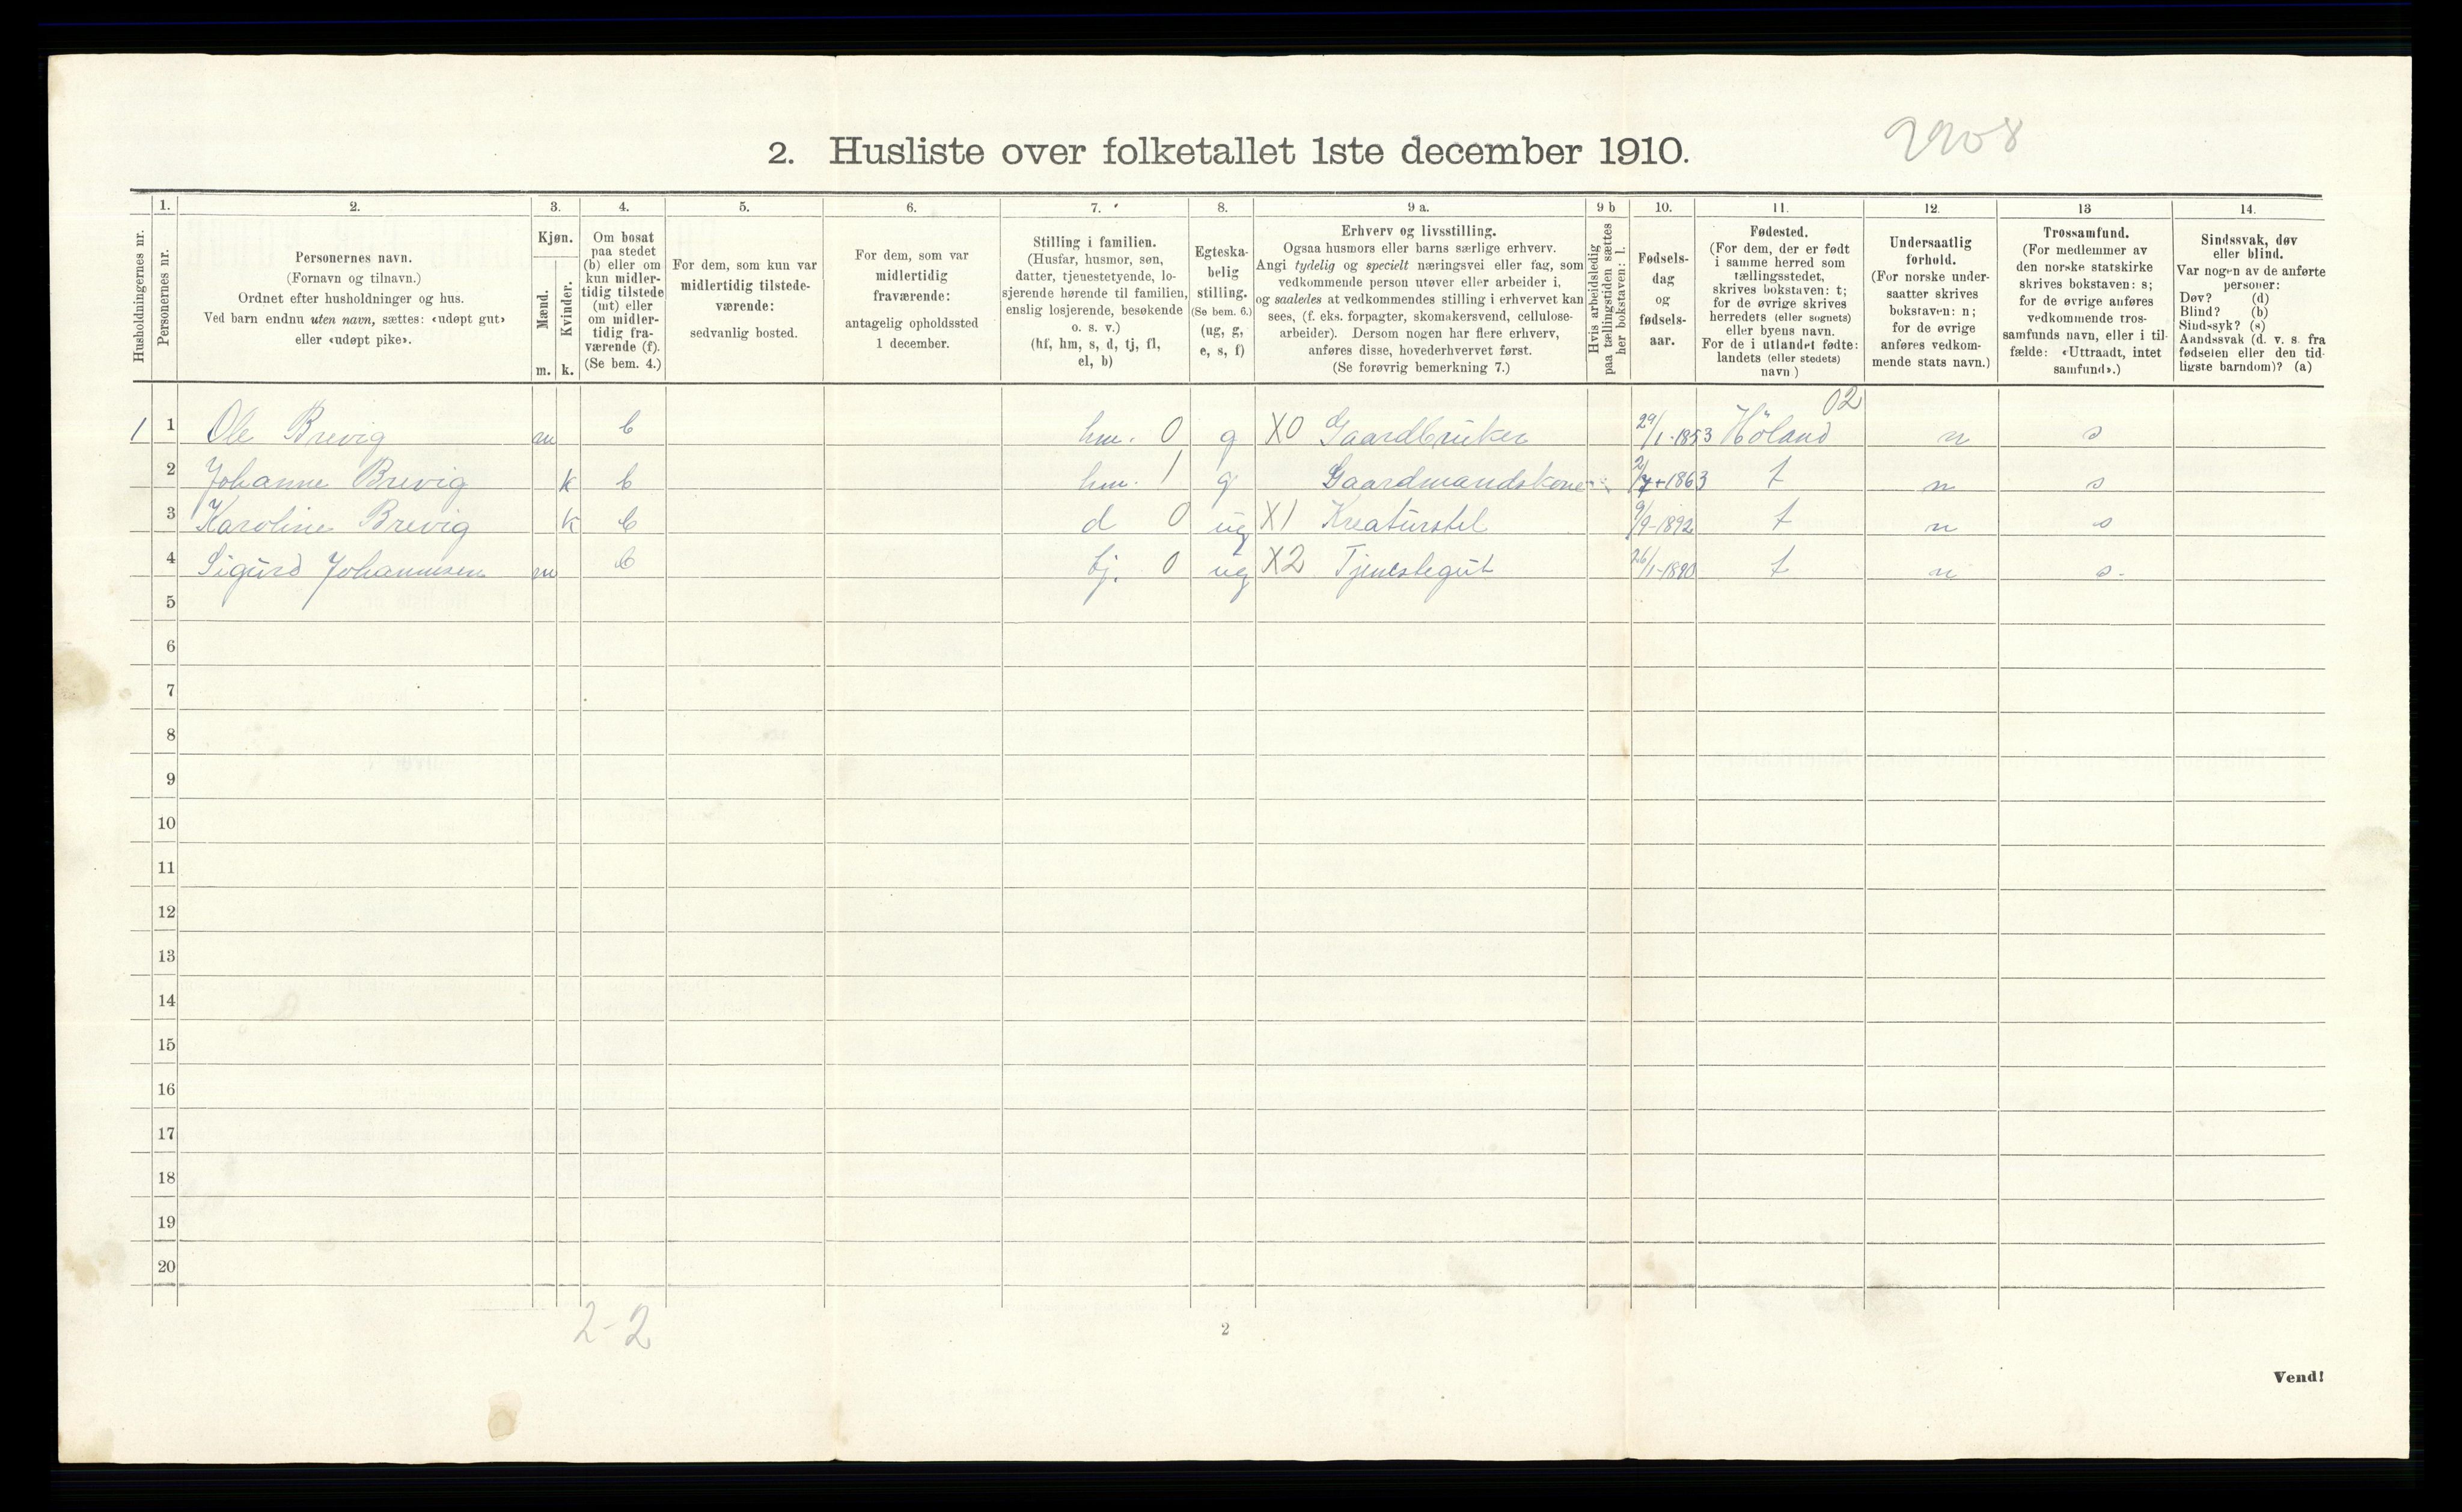 2. Husliste over folketallet 1ste december 1910.
Husholdningernes nr.
1.
Personernes nr.
2.
Personernes navn.
(Fornavn og tilnavn.)
Ordnet efter husholdninger og hus.
Ved barn endnu uten navn, sættes: «udøpt gut»
eller «udøpt pike».
3.
Kjøn.
Mænd.
Kvinder.
m. k.
4.
Om bosat
paa stedet
(b) eller om
kun midler-
tidig tilstede
(mt) eller
om midler-
tidig fra-
værende (f).
(Se bem. 4.)
5.
For dem, som kun var
midlertidig tilstede-
værende:
sedvanlig bosted.
6.
For dem, som var
midlertidig
fraværende:
antagelig opholdssted
1 december.
7.
Stilling i familien.
(Husfar, husmor, søn,
datter, tjenestetyende, lo-
sjerende hørende til familien,
enslig losjerende, besøkende
o. s. v.)
(hf, hm, s, d, tj, fl,
el, b)
8.
Egteska-
belig
stilling.
(Se bem. 6.)
(ug, g,
e, s, f)
9 a.
Erhverv og livsstilling.
Ogsaa husmors eller barns særlige erhverv.
Angi tydelig og specielt næringsvei eller fag, som
vedkommende person utøver eller arbeider i,
og saaledes at vedkommendes stilling i erhvervet kan
sees, (f. eks. forpagter, skomakersvend, cellulose-
arbeider). Dersom nogen har flere erhverv,
anføres disse, hovederhvervet først.
(Se forøvrig bemerkning 7.)
9 b
Hvis arbeidsledig
paa tællingstiden sættes
her bokstaven: l.
10.
Fødsels-
dag
og
fødsels-
aar.
11.
Fødested.
(For dem, der er født
i samme herred som
tællingsstedet,
skrives bokstaven: t;
for de øvrige skrives
herredets (eller sognets)
eller byens navn.
For de i utlandet fødte:
landets (eller stedets)
navn )
12.
Undersaatlig
forhold.
(For norske under-
saatter skrives
bokstaven: n;
for de øvrige
anføres vedkom-
mende stats navn.)
13
Trossamfund.
(For medlemmer av
den norske statskirke
skrives bokstaven: s;
for de øvrige anføres
vedkommende tros-
samfunds navn, eller i til-
fælde: «Uttraadt, intet
samfund».)
14.
Sindssvak, døv
eller blind.
Var nogen av de anførte
personer:
Døv? (d)
Blind? (b)
Sindssyk? (s)
Aandssvak (d. v. s. fra
fødselen eller den tid-
ligste barndom)? (a)
02
1 1 Ole Brevig m b hm. 0 g X0 Gaardbruker 29/1-1853 Höland n s
2 Johanne Brevig k b hm. 1 g Gaardmandskone 2/7-1863 t n s
3 Karoline Brevig k b d 0 ug X1 Kreaturstel 9/9-1892 t n s
4 Sigurd Johannesen m b tj. 0 ug X2 Tjenestegut 26/1-1890 t n s.
5
6
7
8
9
10
11
12
13
14
15
16
17
18
19
20
2-2
2
Vend!